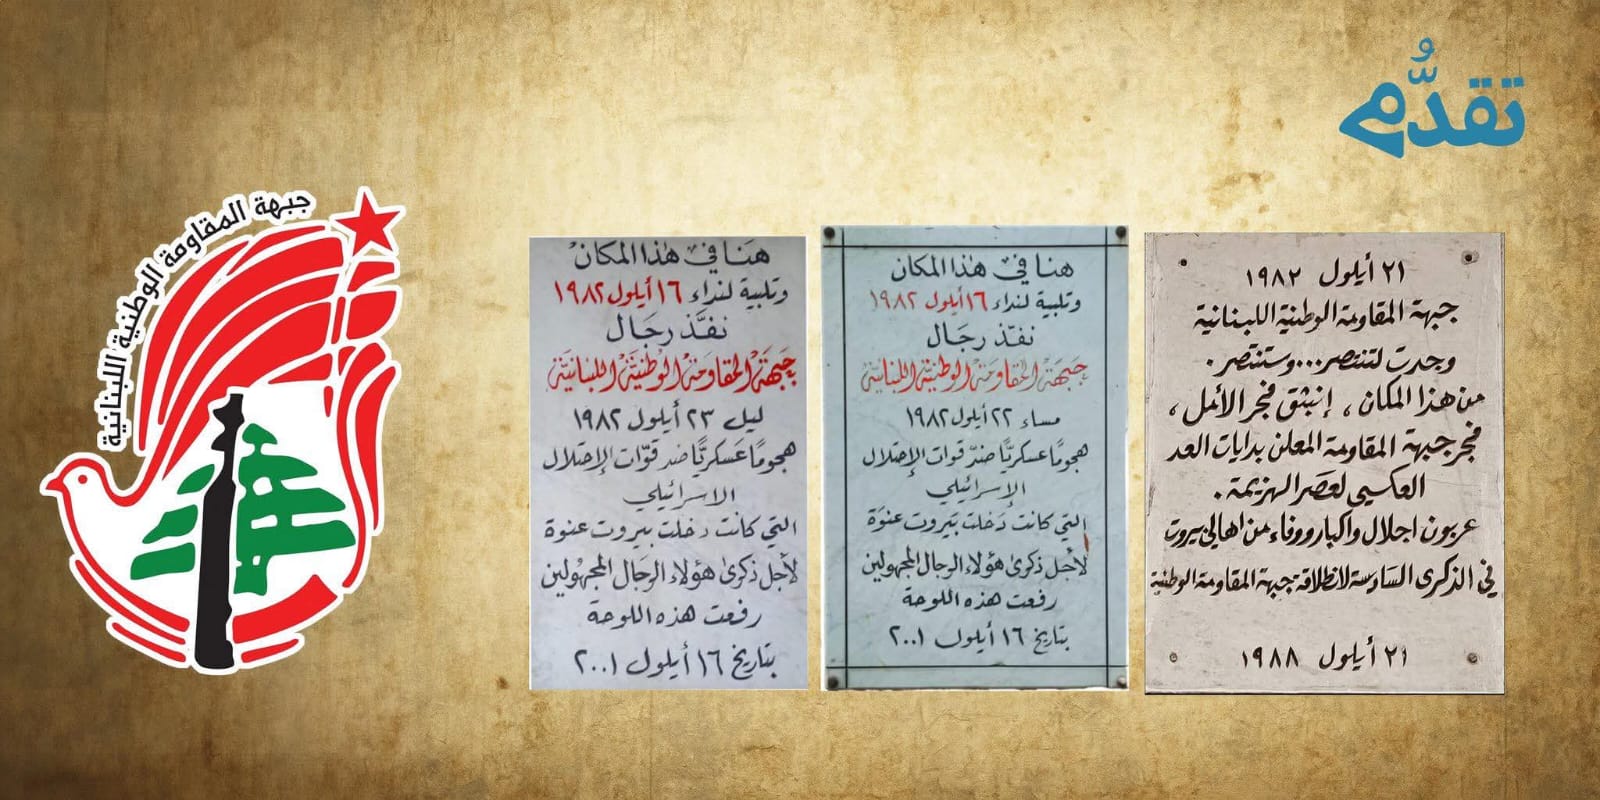 تقدُّم
جبهة المقاومة الوطنية اللبنانية
٢١ أيلول ١٩٨٢
جبهة المقاومة الوطنية اللبنانية
وجدت لتنتصر...وستنتصر.
من هذا المكان، إنبثق فجر الأمل،
فجر جبهة المقاومة المعلن بدايات العد
العكسي لعصر الهزيمة.
عربون اجلال واكبار ووفاء من اهالي بيروت
في الذكرى السادسة لانطلاقة جبهة المقاومة الوطنية
٢١ أيلول ١٩٨٨
هنا في هذا المكان
وتلبية لنداء ١٦ أيلول ١٩٨٢
نفذ رجَال
جَبهَة المقاوَمَة الوَطنيَّة اللبنَانيَّة
مساء ٢٢ أيلول ١٩٨٢
هجومًا عسكريًّا ضدّ قوات الإحتلال
الإسرائيلي
التي كانت دَخلت بَيروت عنوَة
لأجل ذكرى هؤلاء الرجال المجهولين
رفعت هذه اللوحة
بتاريخ ١٦ أيلول ٢٠٠١
هنَا في هٰذا المكان
وتلبية لنداء ١٦ أيلول ١٩٨٢
نفَّذ رجَال
جَبهَة المقاوَمَة الوَطنيَّة اللبنَانيَّة
ليل ٢٣ أيلول ١٩٨٢
هجومًا عَسكريًّا ضد قوّات الإحتلال
الاسرائيلي
التي كانت دخلت بيروت عنوة
لأجل ذكرى هؤلاء الرجال المجهُولين
رفعت هذه اللوحة
بتاريخ ١٦ أيلول ٢٠٠١